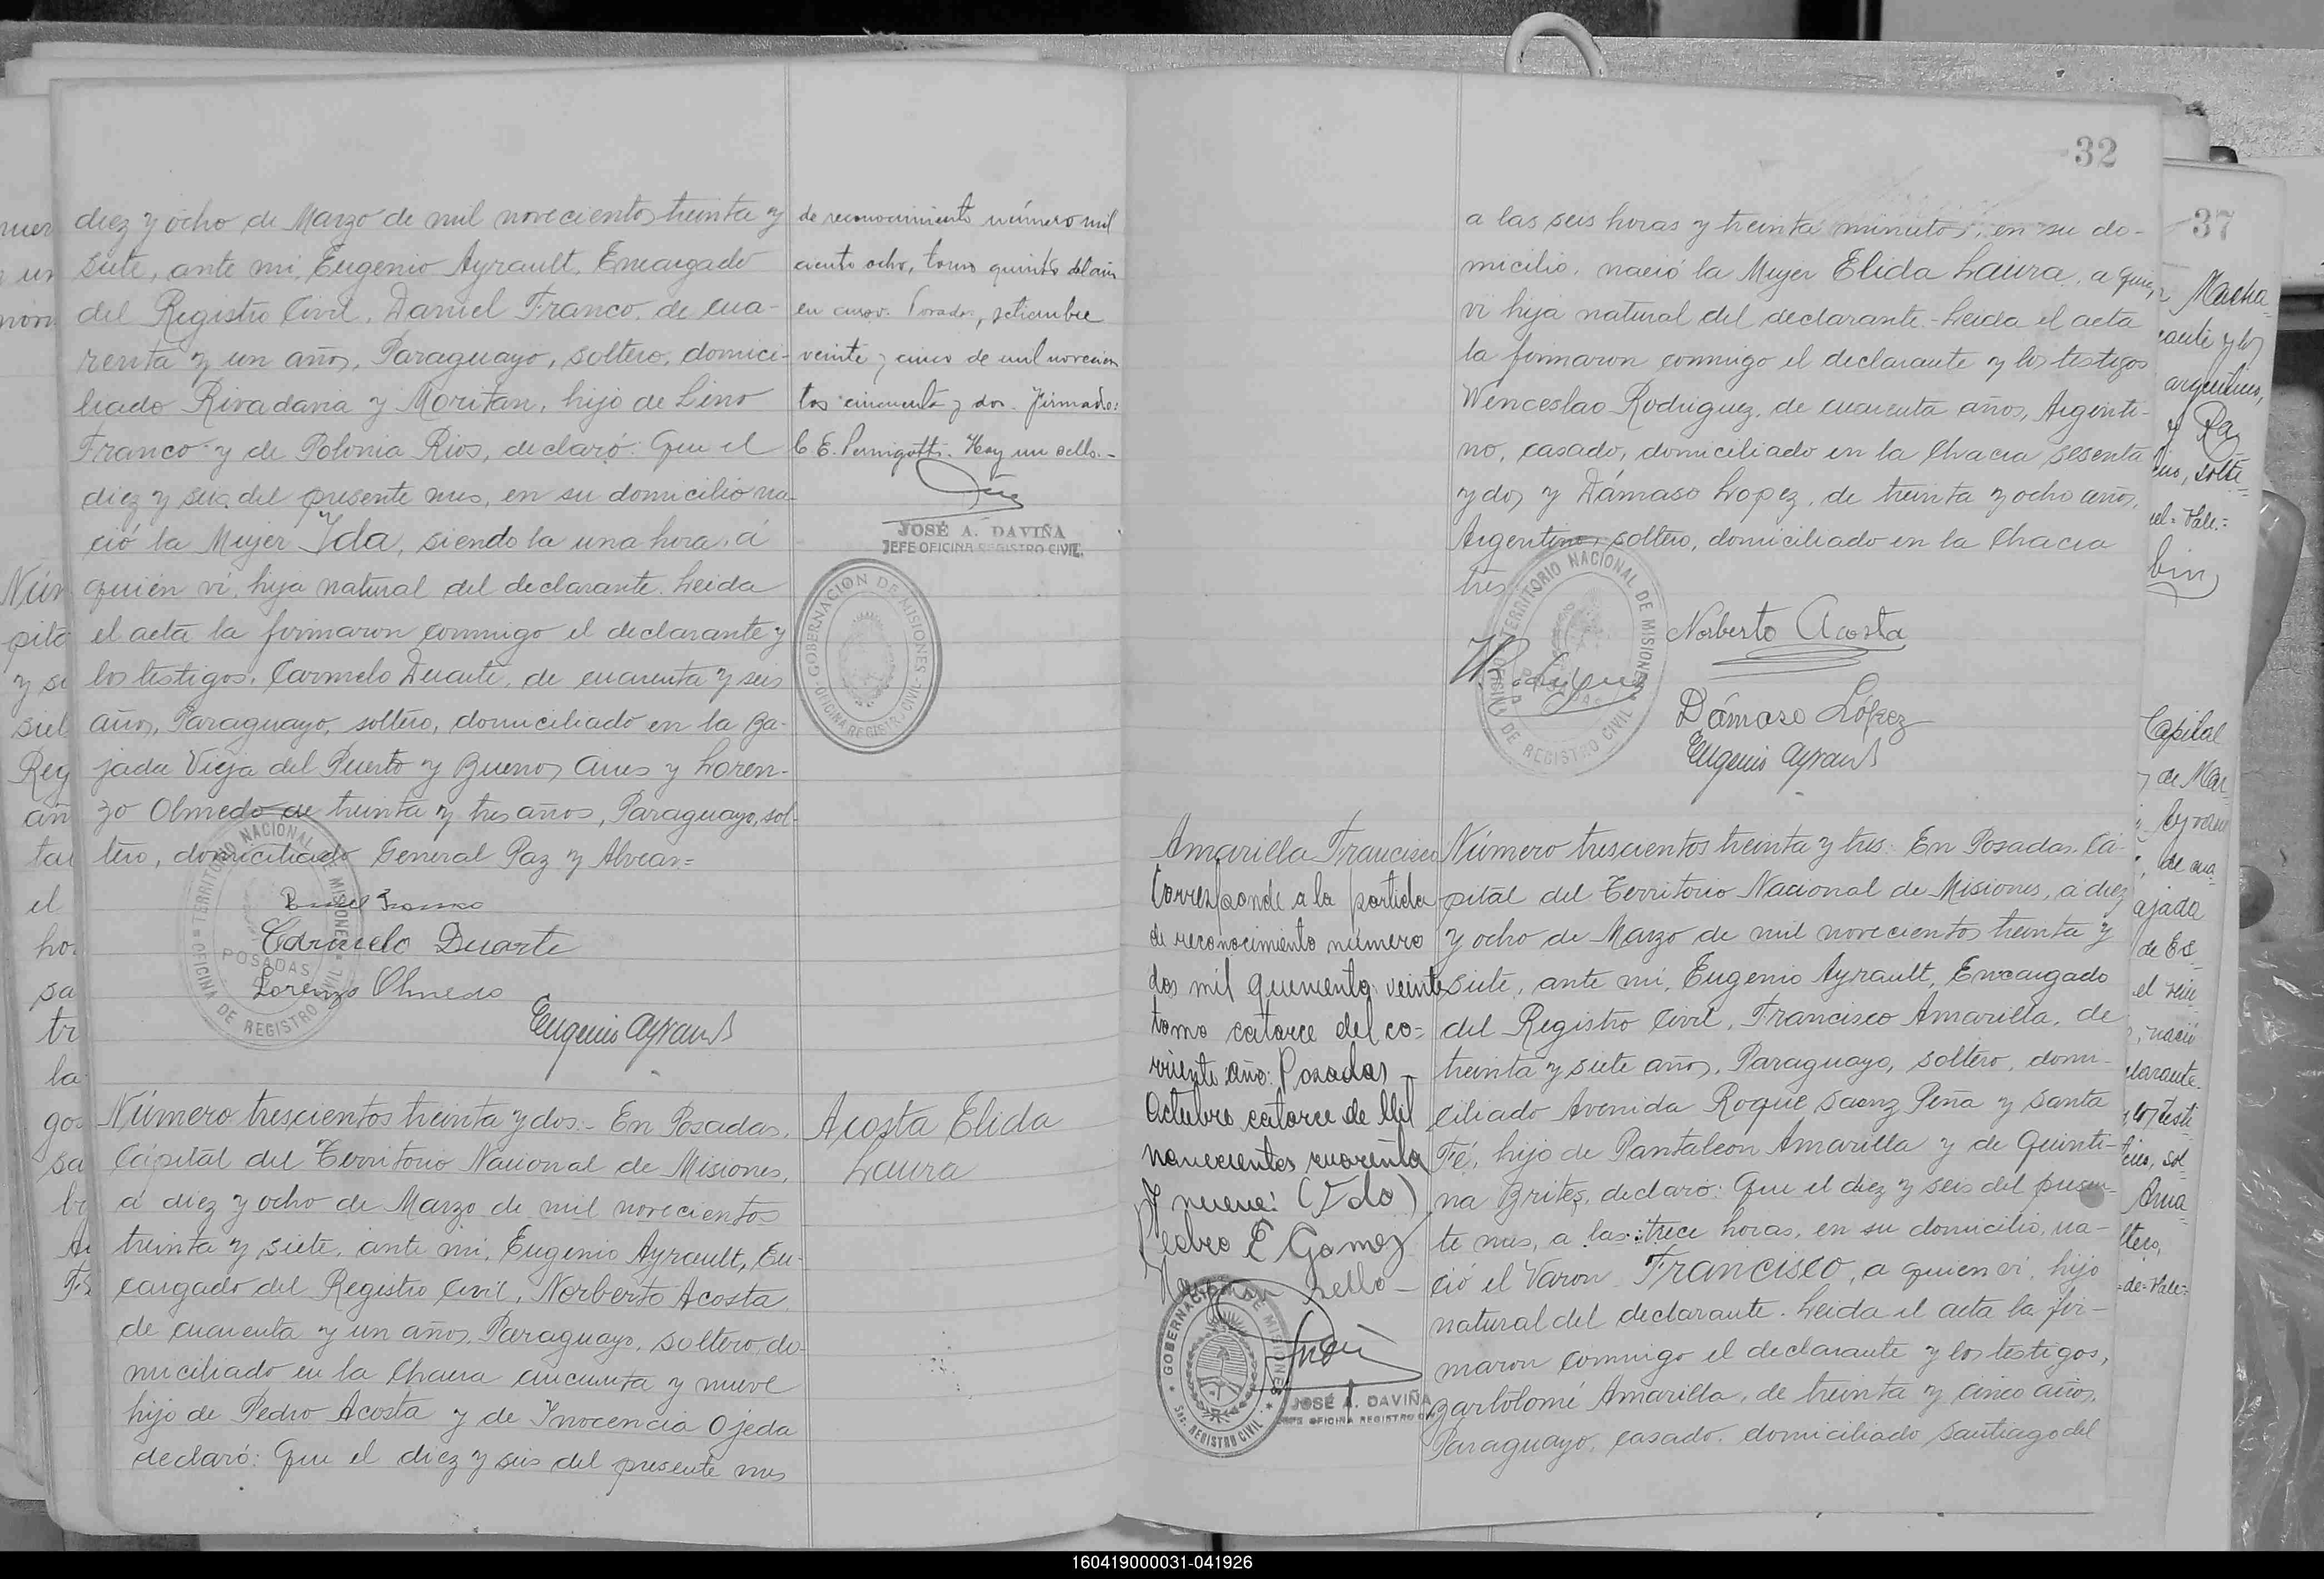 diez y ocho de Marzo de mil novecientos treinta y
siete, ante mi, Eugenio Ayrault, Encargado
del Registro Civil, Daniel Franco, de cua-
renta y un años, Paraguayo, soltero, domici-
liado Rivadavia y Moritan, hijo de Lino
Franco y de Polonia Rios, declaró: Que el
diez y seis del presente mes, en su domicilio na-
ció la Mujer Ida, siendo la una hora, á
quien vi, hija natural del declarante. Leida
el acta la firmaron conmigo el declarante y
los testigos, Carmelo Duarte, de cuarenta y seis
años, Paraguayo, soltero, domiciliado en la Ba-
jada Vieja del Puerto y Buenos Aires y Loren-
zo Olmedo de treinta y tres años, Paraguayo, sol-
tero, domiciliado General Paz y Alvear=
Daniel Franco
Carmelo Duarte
Lorenzo Olmedo
Eugenio Ayrault
TERRITORIO NACIONAL DE MISIONES
POSADAS
OFICINA DE REGISTRO CIVIL
de reconocimiento número mil
ciento ocho, tomo quinto del año
en curso. Posadas, setiembre
veinte y cinco de mil novecien
tos cincuenta y dos. Firmado:
C. E. Pernigotti. Hay un sello.-
JOSÉ A. DAVIÑA
JEFE OFICINA REGISTRO CIVIL
GOBERNACION DE MISIONES
OFICINA REGISTRO CIVIL
Número trescientos treinta y dos.- En Posadas,
Capital del Territorio Nacional de Misiones,
a diez y ocho de Marzo de mil novecientos
treinta y siete, ante mi, Eugenio Ayrault, En-
cargado del Registro Civil, Norberto Acosta
de cuarenta y un años, Paraguayo, soltero, do-
miciliado en la Chacra cincuenta y nueve
hijo de Pedro Acosta y de Inocencia Ojeda
declaró: Que el diez y seis del presente mes
Acosta Elida
Laura
32
a las seis horas y treinta minutos, en su do-
micilio, nació la Mujer Elida Laura, a quien
vi hija natural del declarante.- Leida el acta
la firmaron conmigo el declarante y los testigos
Wenceslao Rodriguez, de cuarenta años, Argenti-
no, casado, domiciliado en la Chacra sesenta
y dos y Dámaso Lopez, de treinta y ocho años,
Argentino, soltero, domiciliado en la Chacra
tres
Norberto Acosta
W. Rodriguez
Dámaso López
Eugenio Ayrault
TERRITORIO NACIONAL DE MISIONES
POSADAS
OFICINA DE REGISTRO CIVIL
Amarilla Francisco
Corresponde a la partida
de reconocimiento número
dos mil quinientos veinte
tomo catorce del co=
rriente año: Posadas -
Octubre catorce de Mil
novecientos cuarenta
y nueve: (Fdo)
Pedro E Gomez
Hay un sello -
GOBERNACION DE MISIONES
REGISTRO CIVIL
JOSÉ A. DAVIÑA
JEFE OFICINA REGISTRO CIVIL
Número trescientos treinta y tres: En Posadas, Ca-
pital del Territorio Nacional de Misiones, a diez
y ocho de Marzo de mil novecientos treinta y
siete, ante mi, Eugenio Ayrault, Encargado
del Registro Civil, Francisco Amarilla, de
treinta y siete años, Paraguayo, soltero, domi-
ciliado Avenida Roque Saenz Peña y Santa
Fé, hijo de Pantaleon Amarilla y de Quinti-
na Brites, declaró: Que el diez y seis del presen-
te mes, a las trece horas, en su domicilio, na-
ció el Varon Francisco, a quien vi, hijo
natural del declarante. Leida el acta la fir-
maron conmigo el declarante y los testigos,
Bartolomé Amarilla, de treinta y cinco años,
Paraguayo, casado, domiciliado Santiago del
37
Capital
de Mar-
ajada
160419000031-041926